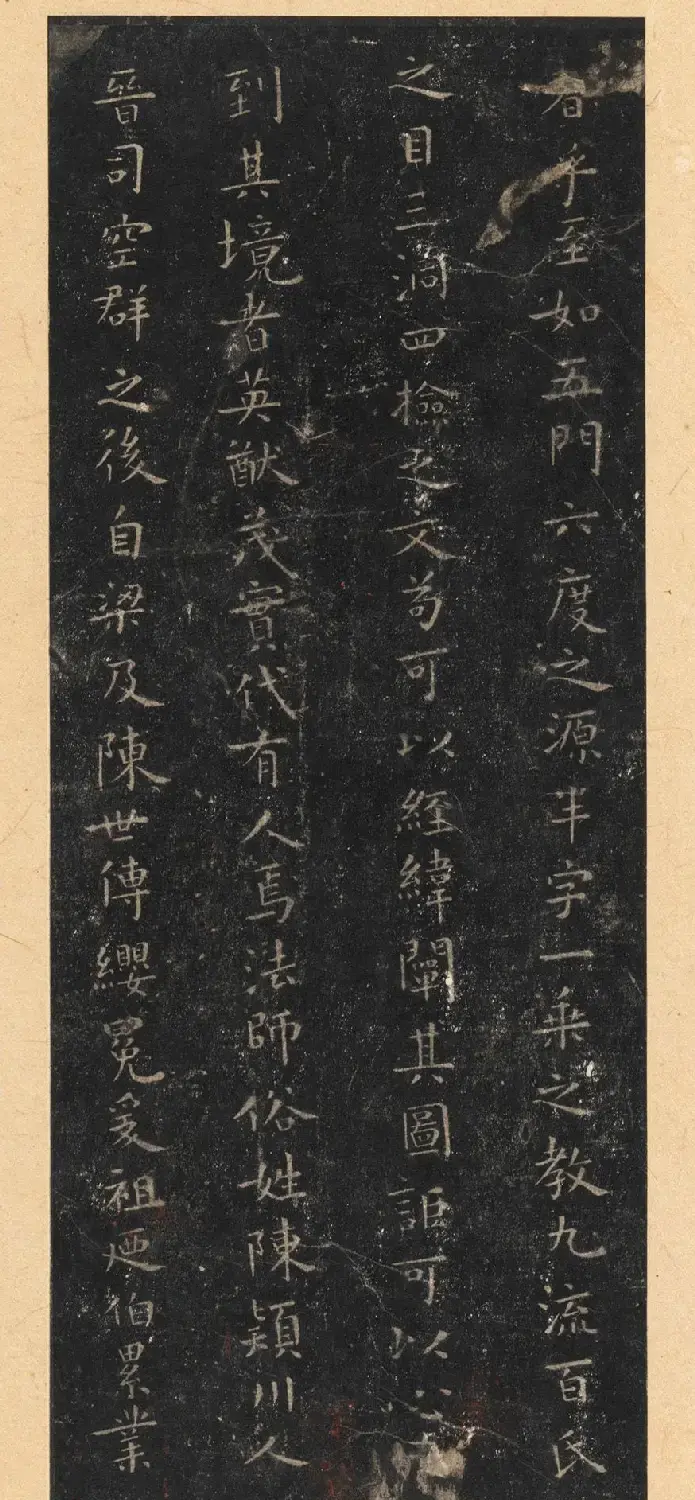 乎至如五門六度之源半字一乘之教九流百氏
之目三洞四檢之文苟可以經緯闡其圖詎可以心
到其境者英猷茂實代有人焉法師俗姓陳潁川人
晉司空群之後自梁及陳世傳纓冕爰祖迺伯累業